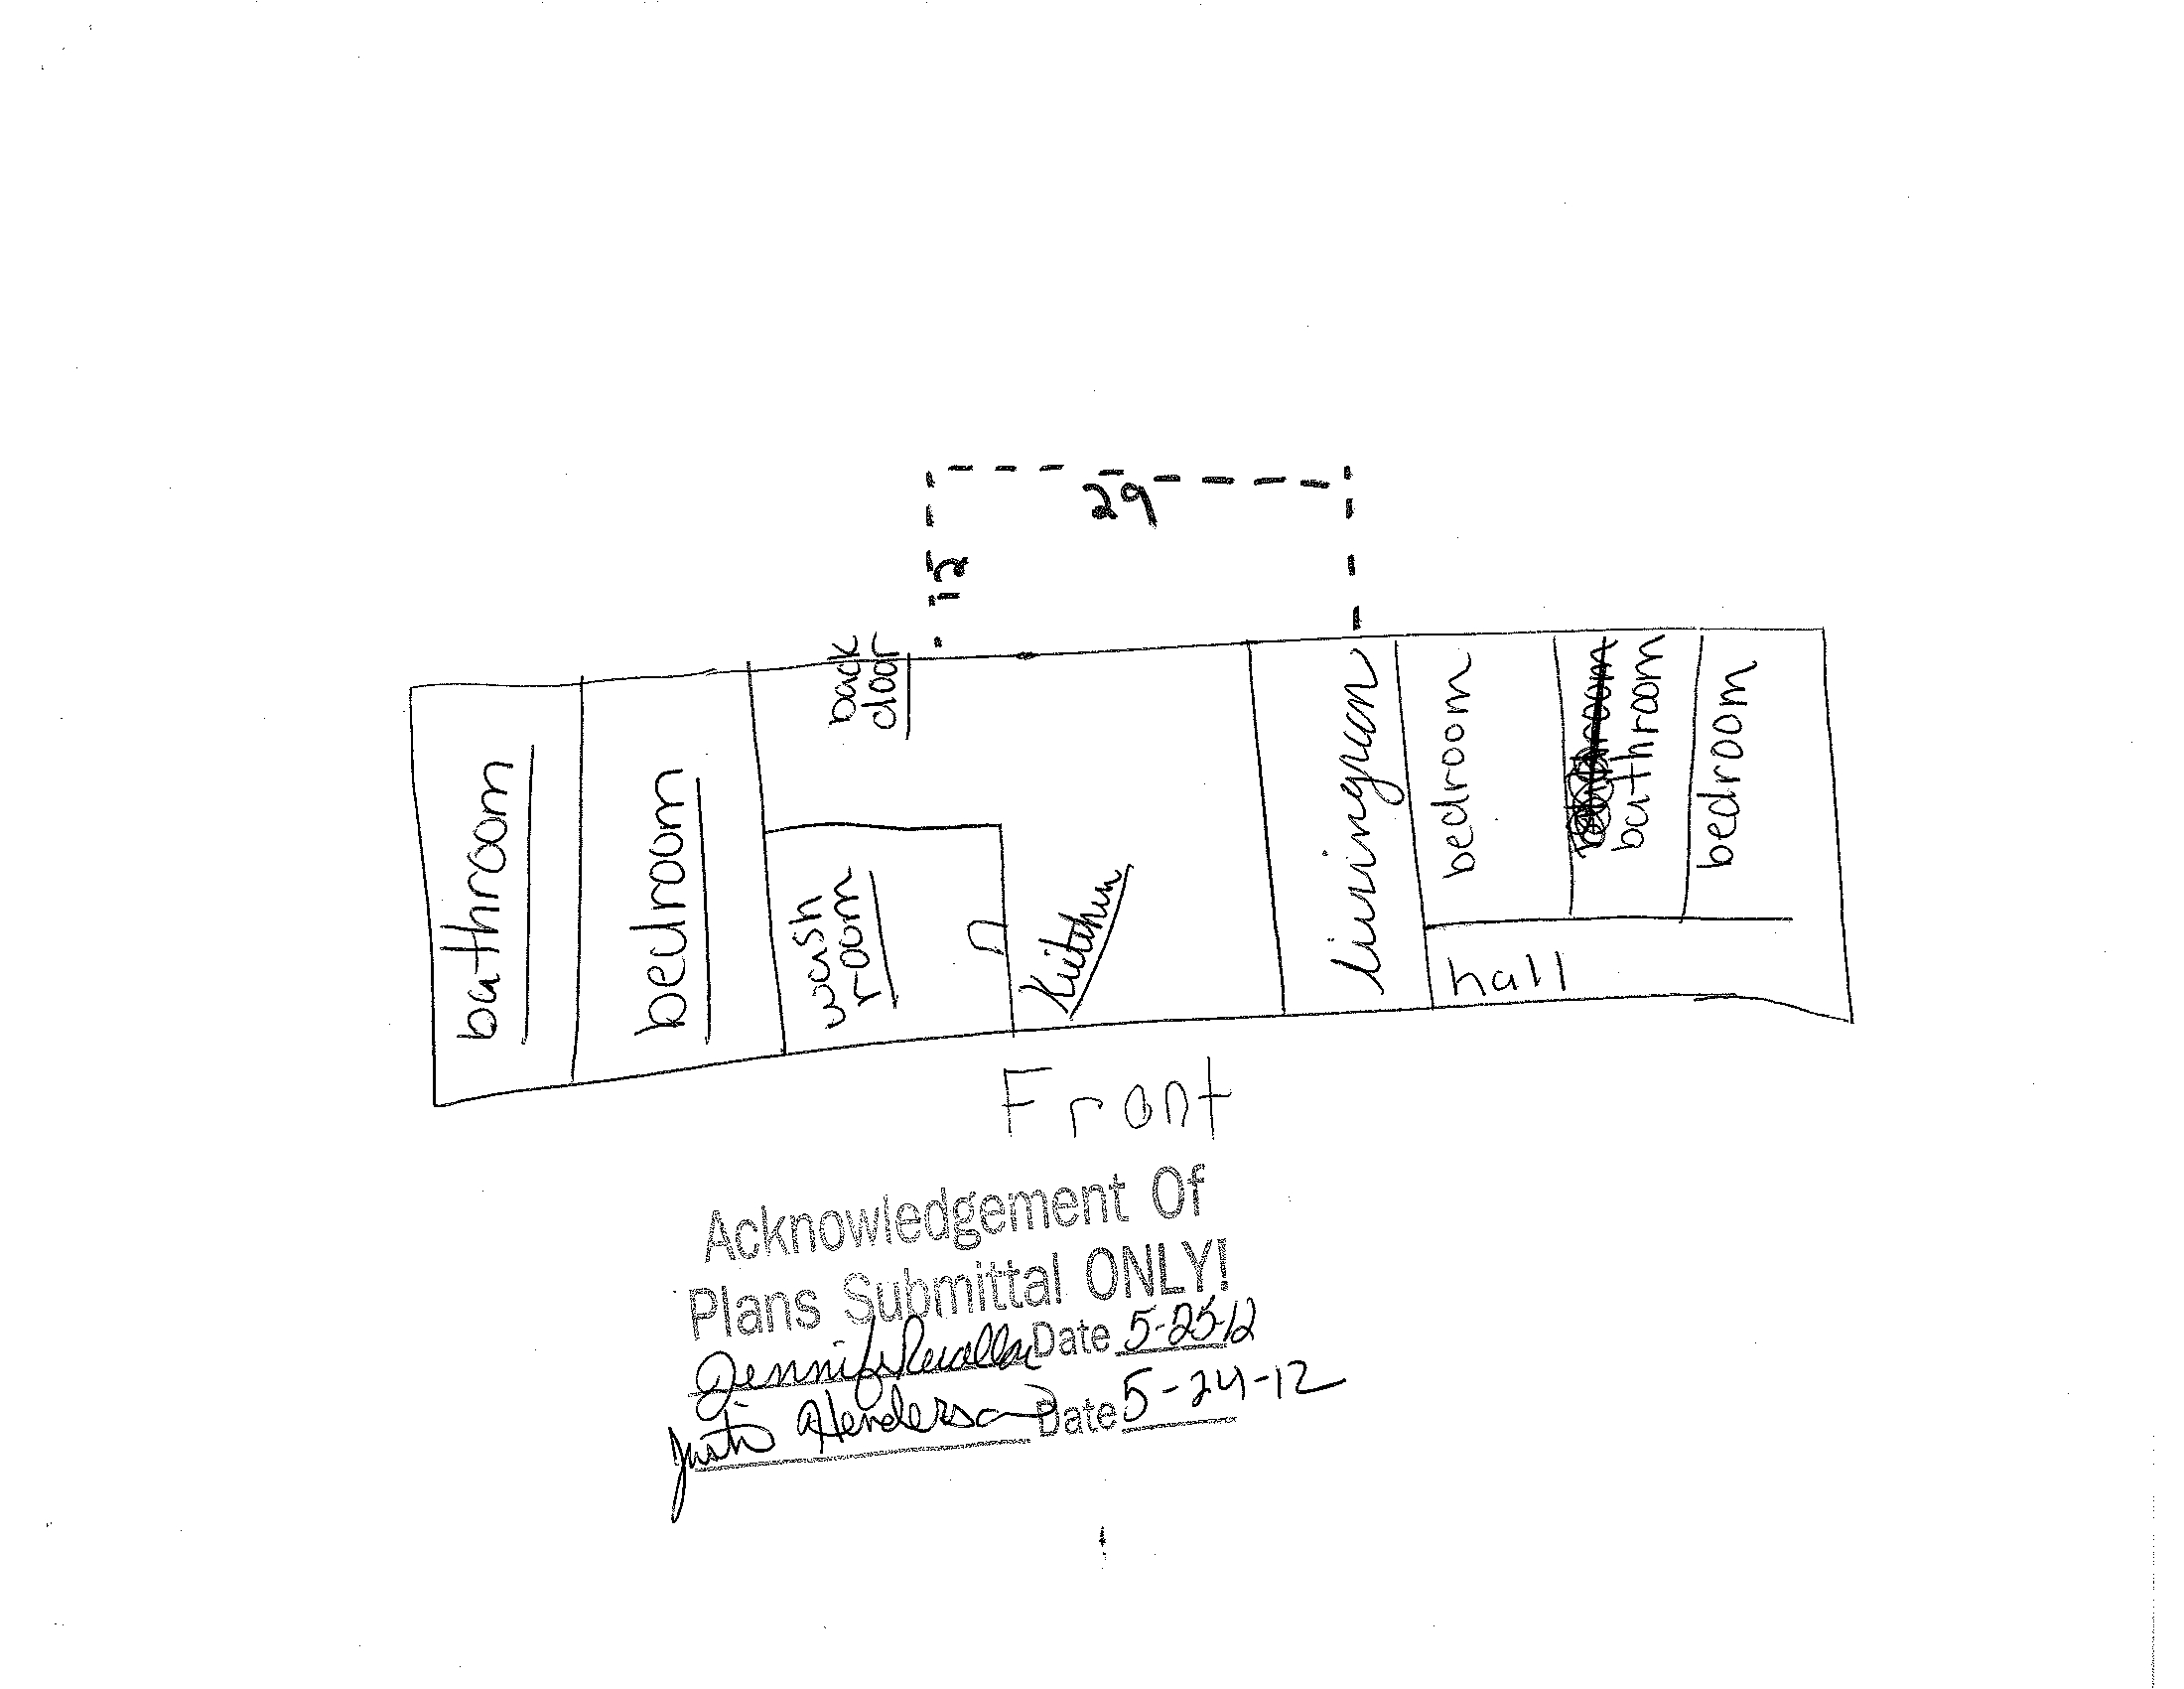 29
12
back
door
bathroom
bedroom
wash
room
Kitchen
livingroom
bedroom
bathroom
bedroom
hall
Front
Acknowledgement Of
Plans Submittal ONLY!
Date 5-25-12
Justin Henderson Date 5-24-12